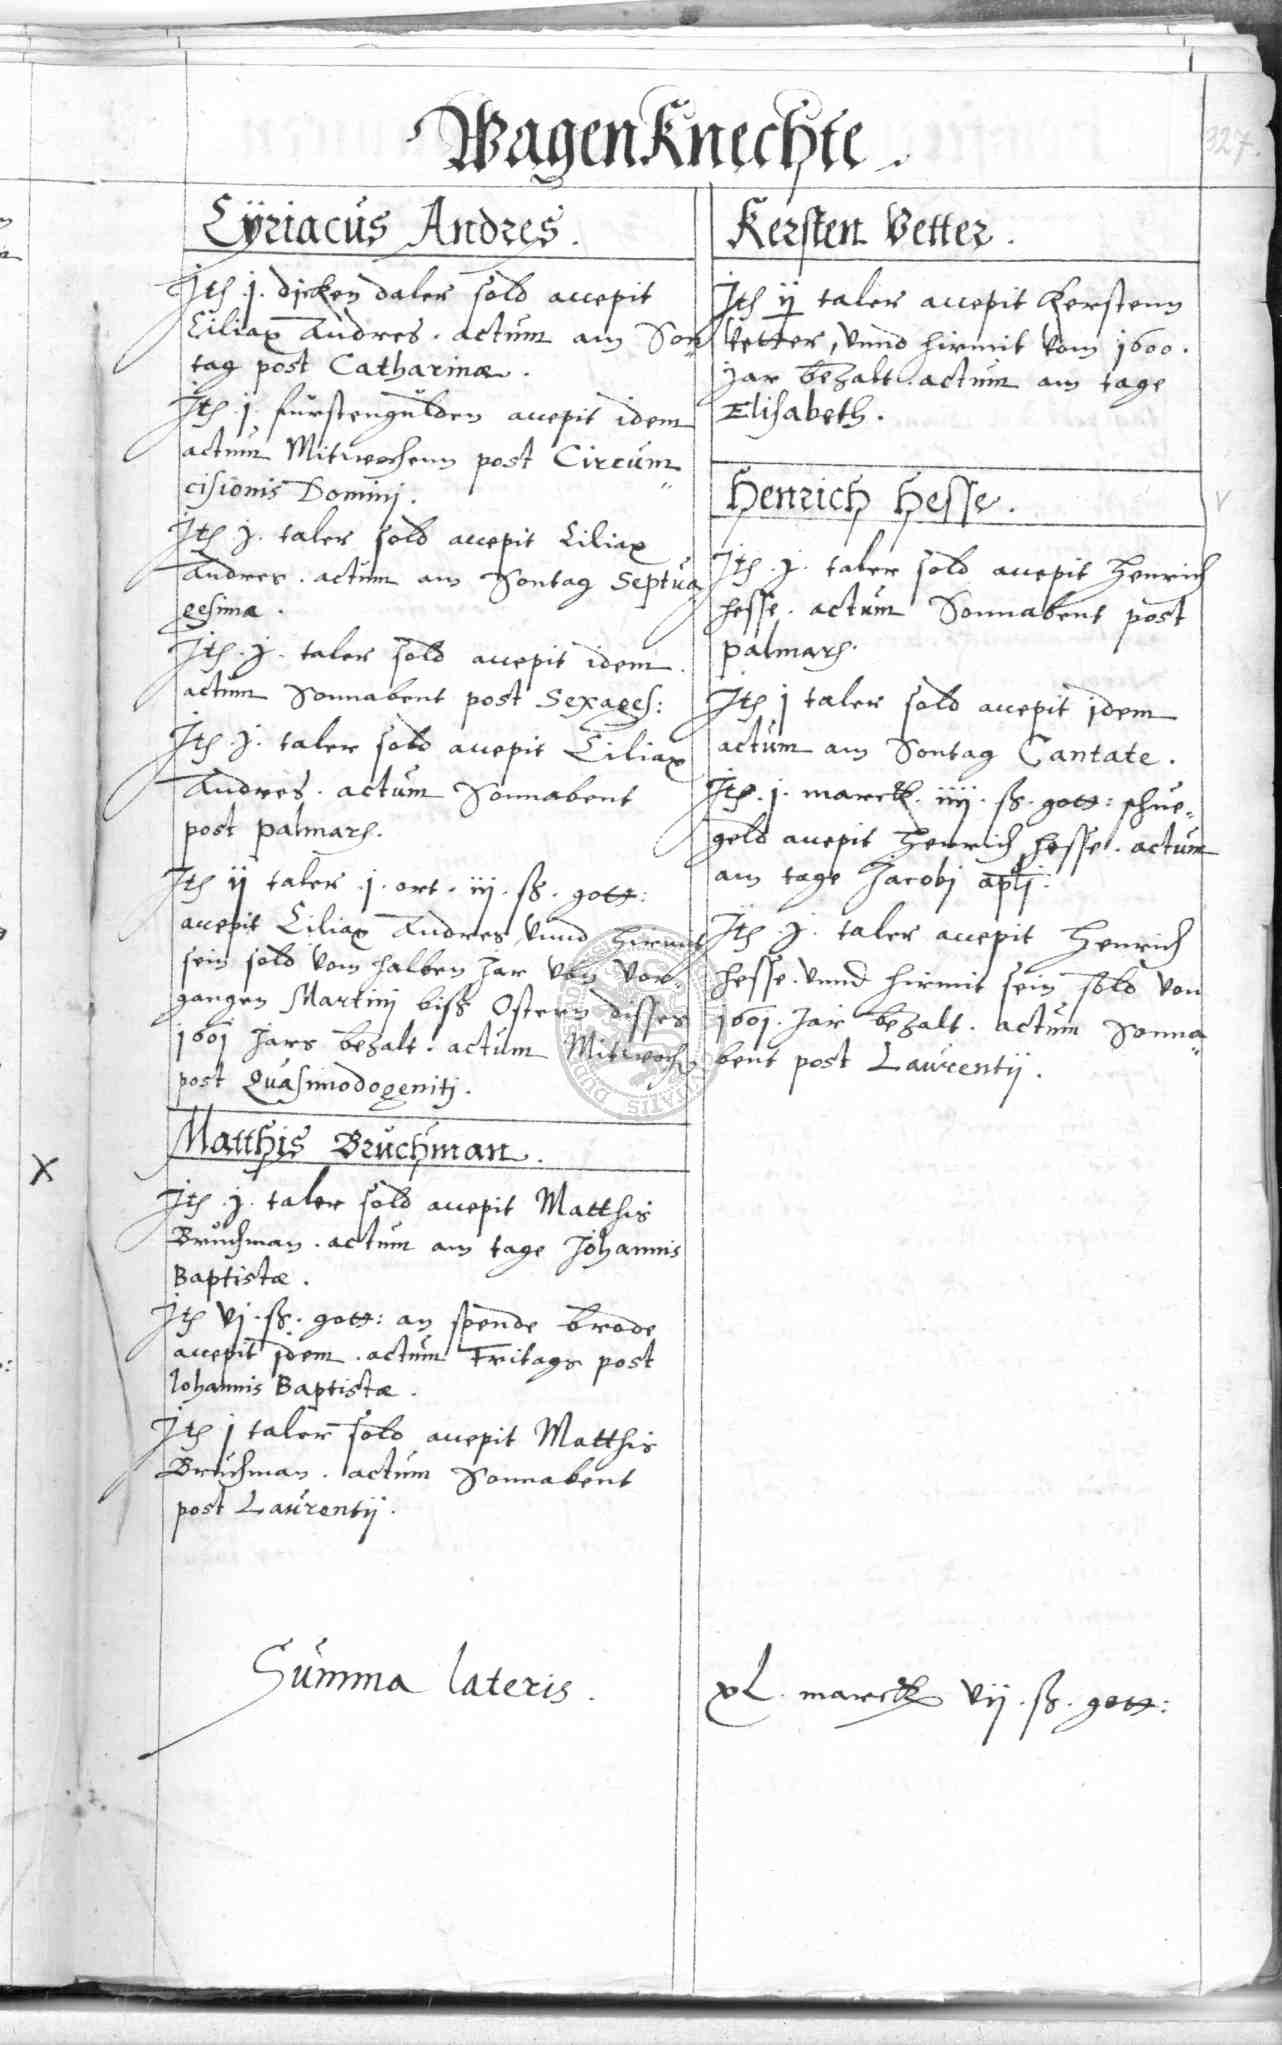 WagenKnechte.
327.
Cÿriacus Andres.
Itē .j. dicken daler sold accepit
Ciliax Andres. actum am Son„
tag post Catharinæ.
Itē .j. fürstengulden accepit idem
actum Mitwochenn post Circum„
cisionis Dominj.
Itē .j. taler sold accepit Ciliax
Andres. actum am Sontag Septua„
gesima.
Itē .j. taler sold accepit idem.
actum Sonnabent post Sexages:
Itē .j. taler sold accepit Ciliax
Andres. actum Sonnabent
post palmarū.
Itē ij taler .j. ort. iij. ß. gott:
accepit Ciliax Andres, vnnd hirmit
sein sold vom halben Jar von vor„
gangen Martinj biß Ostern disses
1601 Jars bezalt. actum Mitwoch
post Quasimodogenitj.
Matthis Bruchman.
Itē .j. taler sold accepit Matthis
Bruchman. actum am tage Johannis
Baptistæ.
Itē vj. ß. gott: an spende brode
accepit idem. actum Fritags post
Iohannis Baptistæ.
Itē j taler sold accepit Matthis
Bruchman. actum Sonnabent
post Laurentij.
Kersten Vetter.
Itē ij taler accepit Kerstenn
Vetter, vnnd hirmit vom 1600.
Jar bezalt. actum am tage
Elisabeth.
Henrich Hesse.
Itē .j. taler sold accepit Henrich
Hesse. actum Sonnabent post
palmarū.
Itē j taler sold accepit idem
actum am Sontag Cantate.
Itē .j. marck. iiij. ß. gott: schue„
geld accepit Henrich Hesse. actum
am tage Jacobj aplj.
Itē .j. taler accepit Henrich
Hesse. vnnd hirmit sein sold von
1601. Jar bezalt. actum Sonna„
bent post Laurentij.
Summa lateris.
xL. marck vij. ß. gott: